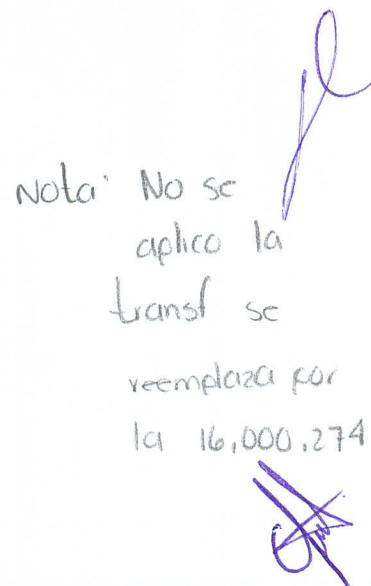 Nota: No se
aplico la
transf se
reemplaza por
la 16,000,274